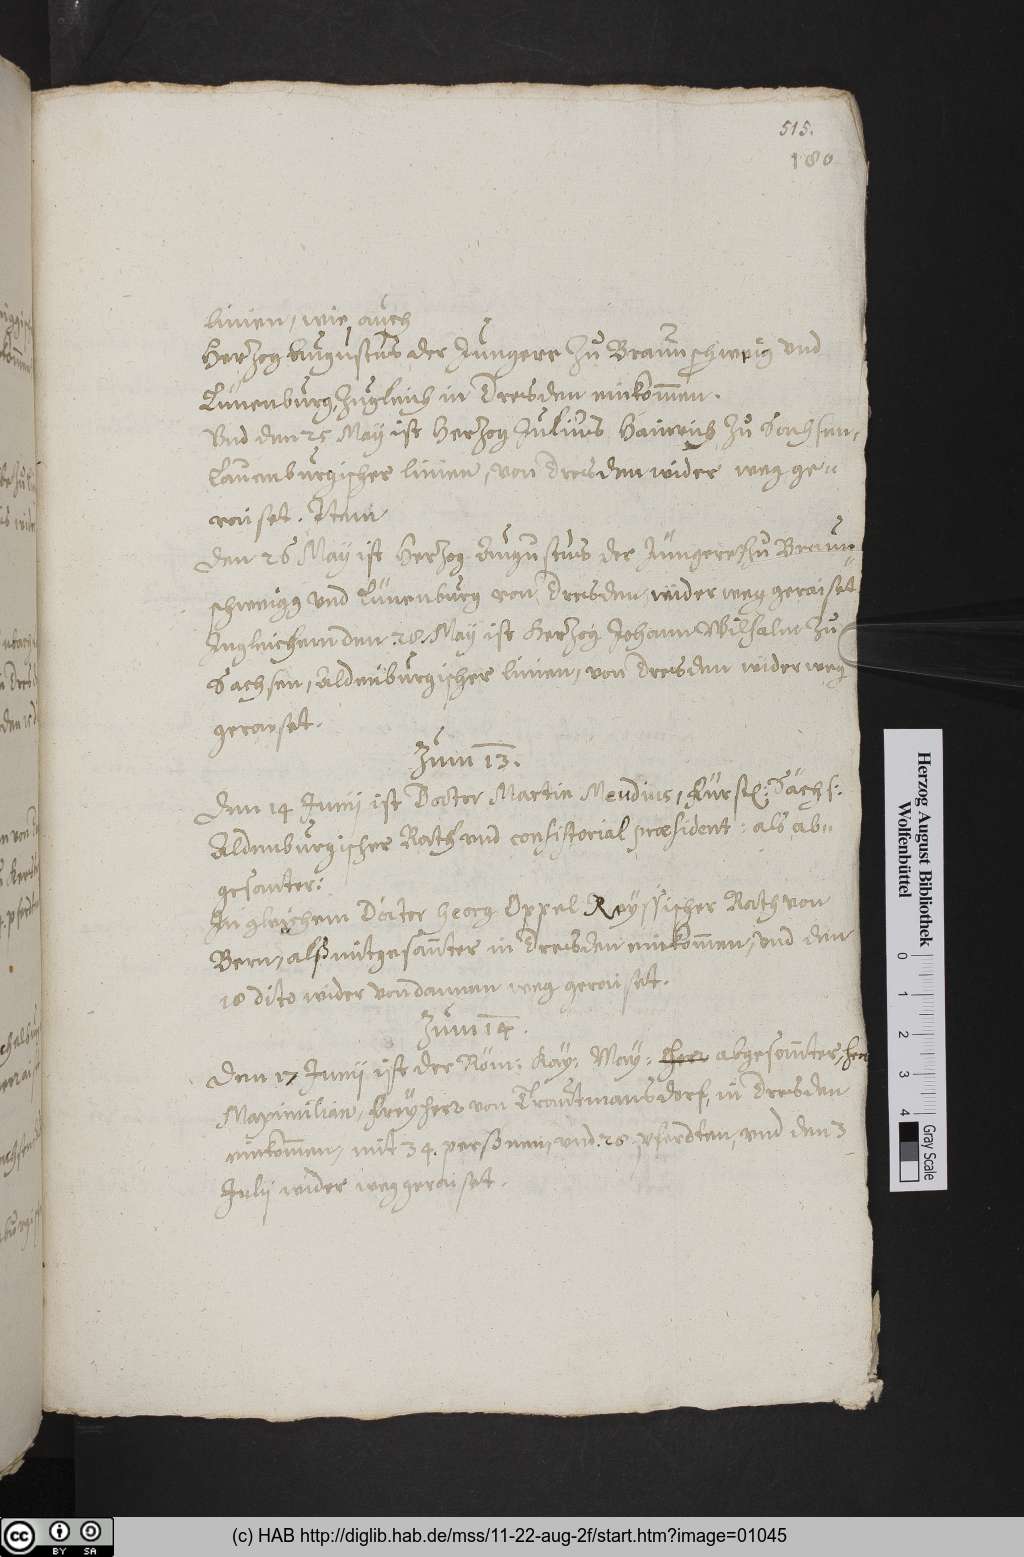 515.
180
linien, wie auch
Hertzog Augustus der Jüngere zu Braunschweig und
Lünenburg, zugleich in Dresden einkom̃en.
Vnd den 25 May ist Hertzog Julius Hainrich zu Sachsen,
Lauenburgischer linien, von Dresden wider weg ge-
raiset. Item
Den 26 May ist Hertzog Augustus der Jüngere zu Braun
schweigg vnd Lünenburg von Dresden, wider weg geraiset
Ingleichem den 28. May ist Hertzog Johann Wilhalm zu
Sachsen, Aldenburgischer linien, von Dresden wider weg
geraiset.
Zum 13.
Den 14 Junij ist Doctor Martin Meudius, Fürstl: Sächs:
Aldenburgischer Rath vnd consistorial præsident: als ab-
gesanter:
In gleichem Doctor Georg Oppel Reyssischer Rath von
Bern, alß mitgesan̄ter in Dresden einkom̃en, vnd den
18 dito wider von dannen weg geraiset.
Zum 14.
Den 17 Junij ist der Röm: Kay: May: abgesan̄ter, her
Maximilian, Freyherr von Trautmansdorf, in Dresden
einkom̃en, mit 34. persohnen, vnd 28. pferdten, vnd den 3
Julij wider weg geraiset.
Herzog August Bibliothek
Wolfenbüttel
0 1 2 3 4
Gray Scale
cc BY SA
(c) HAB http://diglib.hab.de/mss/11-22-aug-2f/start.htm?image=01045